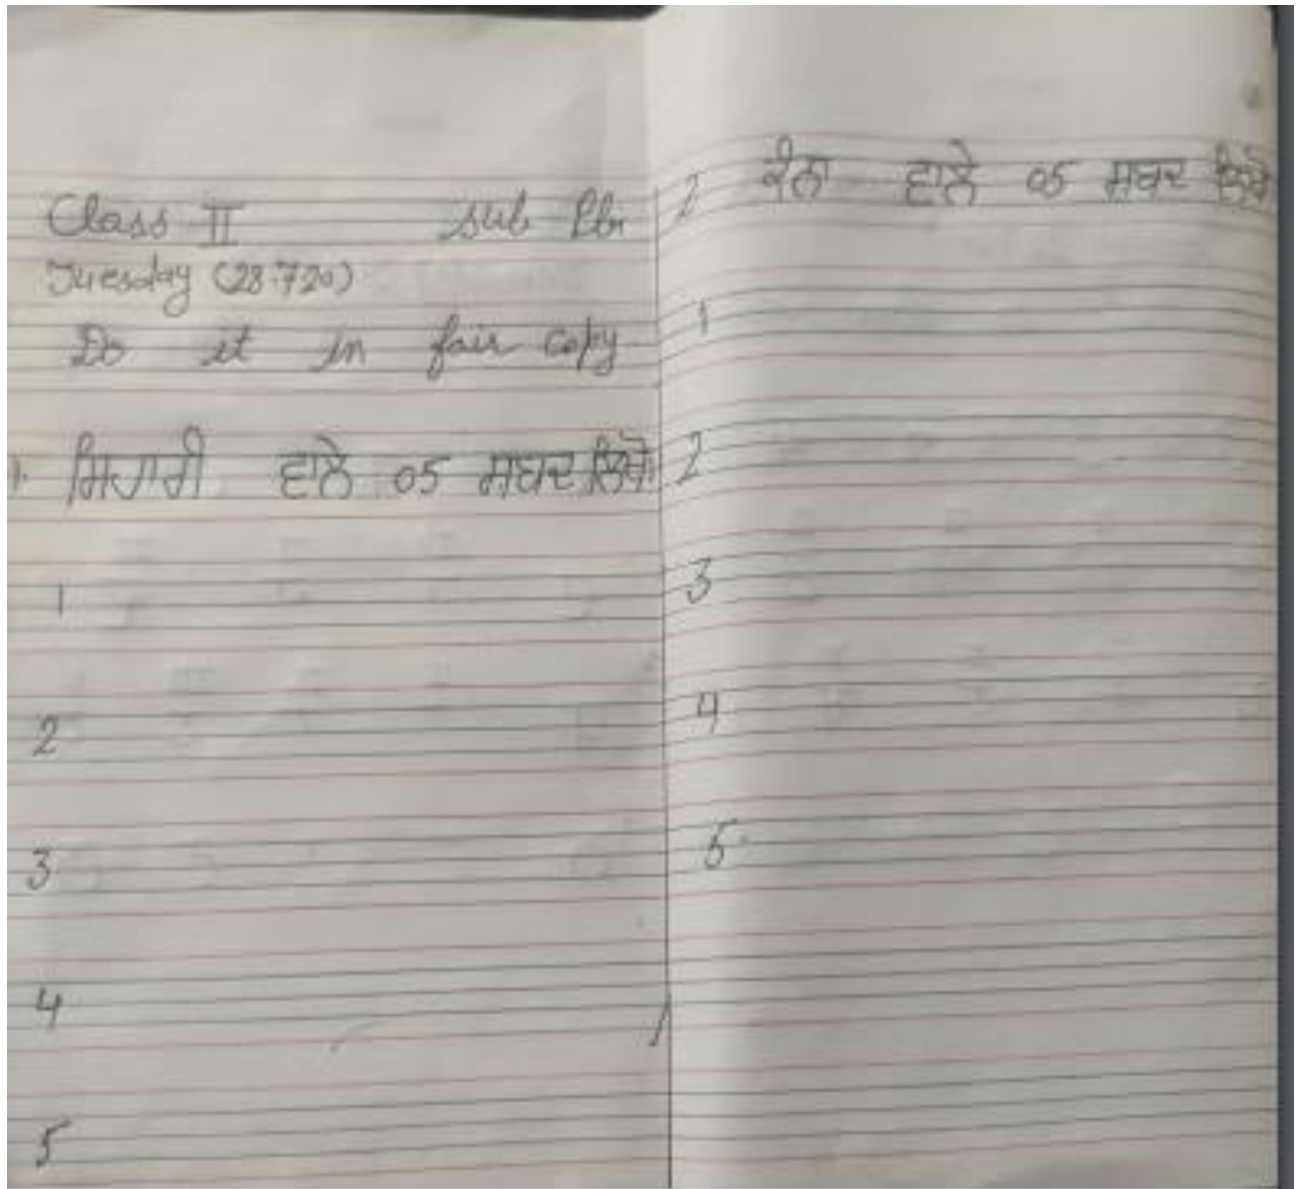 Class II sub Pbi
Tuesday (28.7.20)
Do it in fair copy
1. ਸਿਹਾਰੀ ਵਾਲੇ 05 ਸ਼ਬਦ ਲਿਖੋ
1
2
3
4
5
2 ਕੰਨਾ ਵਾਲੇ 05 ਸ਼ਬਦ ਲਿਖੋ
1
2
3
4
5